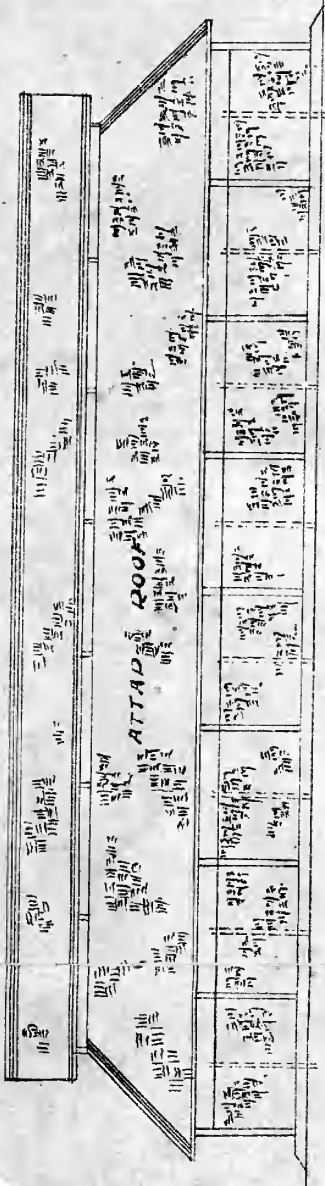 ATTAP ROOF